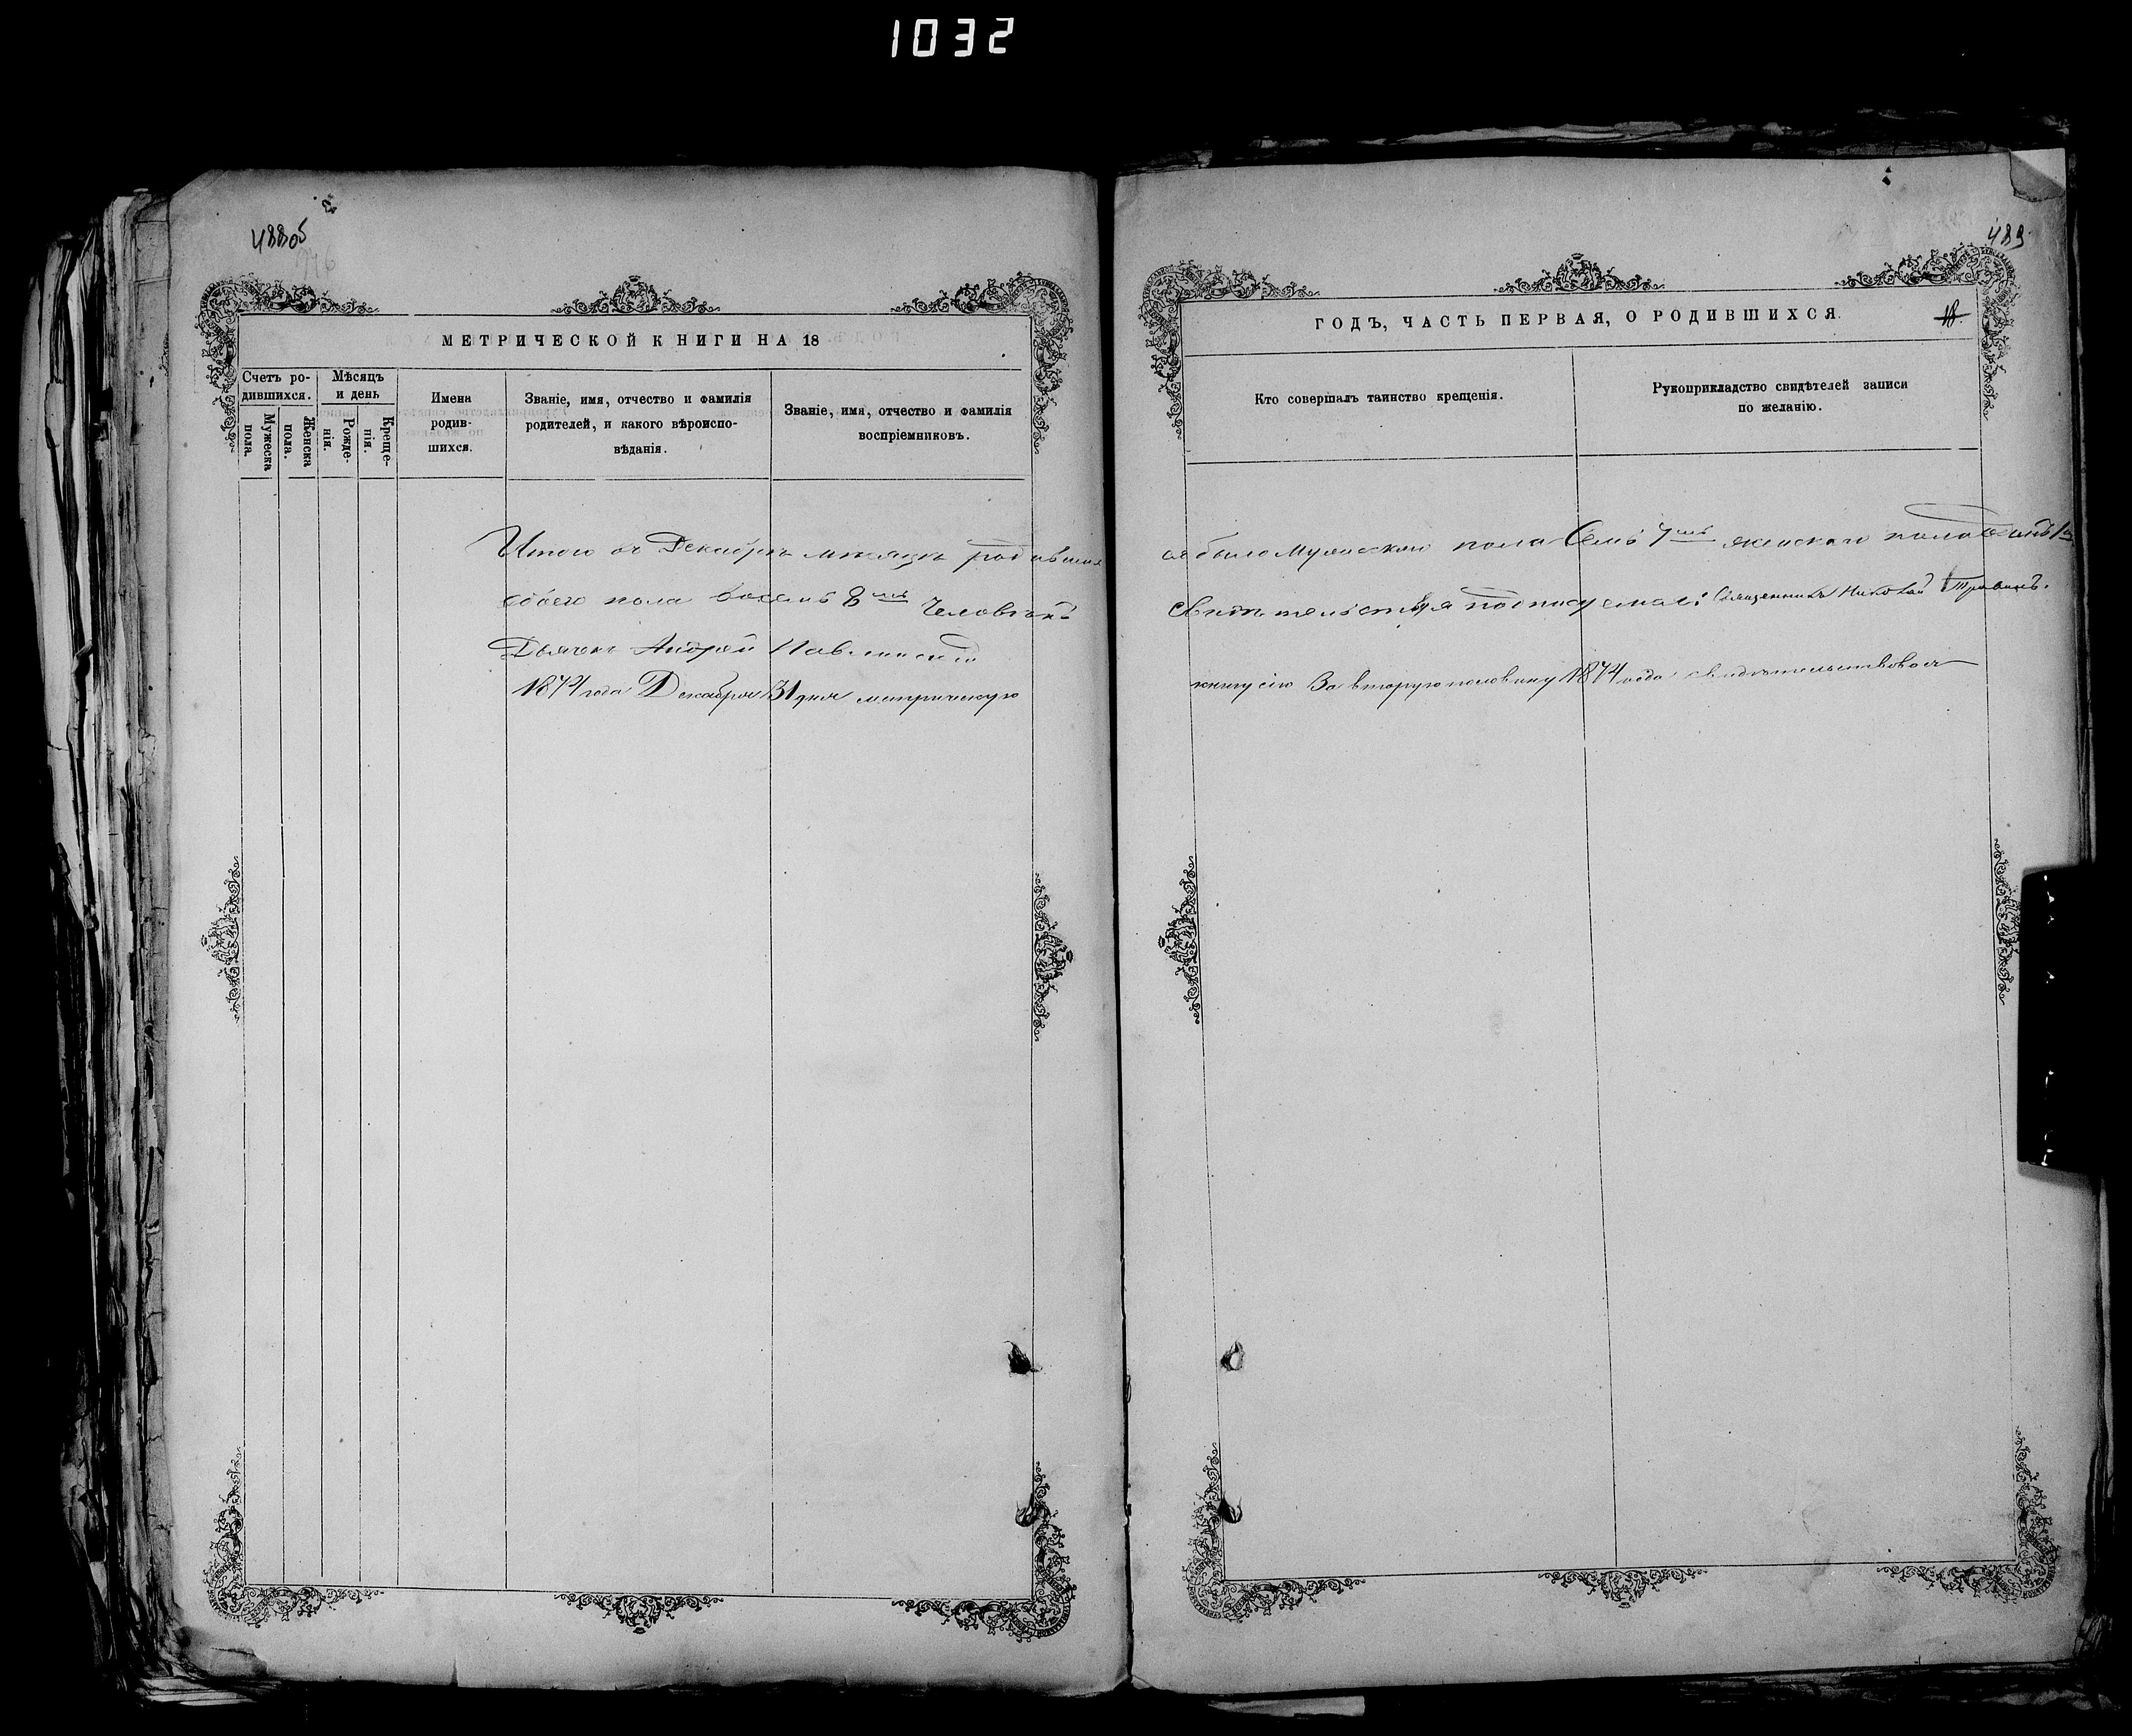 1032
488об
489
МЕТРИЧЕСКОЙ КНИГИ НА 18
Счетъ ро-
дившихся.
Мужеска
пола.
Женска
пола.
Мѣсяцъ
и день
Рожде-
нія.
Креще-
нія.
Имена
родив-
шихся.
Званіе, имя, отчество и фамилія
родителей, и какого вѣроиспо-
вѣданія.
Званіе, имя, отчество и фамилія
воспріемниковъ.
ГОДЪ, ЧАСТЬ ПЕРВАЯ, О РОДИВШИХСЯ.
18.
Кто совершалъ таинство крещенія.
Рукоприкладство свидѣтелей записи
по желанію.
Итого въ Декабрѣ мѣсяцѣ родивших
ся было Мужескаго пола Семь 7мь женскаго пола
обоего пола восемь 8мь Человѣкъ
Свидѣтельствуя подписуемся: Священникъ Николай
Дьячекъ Андрей
1874 года Декабря 31 дня метрическую
книгу сію За вторую половину 1874 года свидѣтельствовал